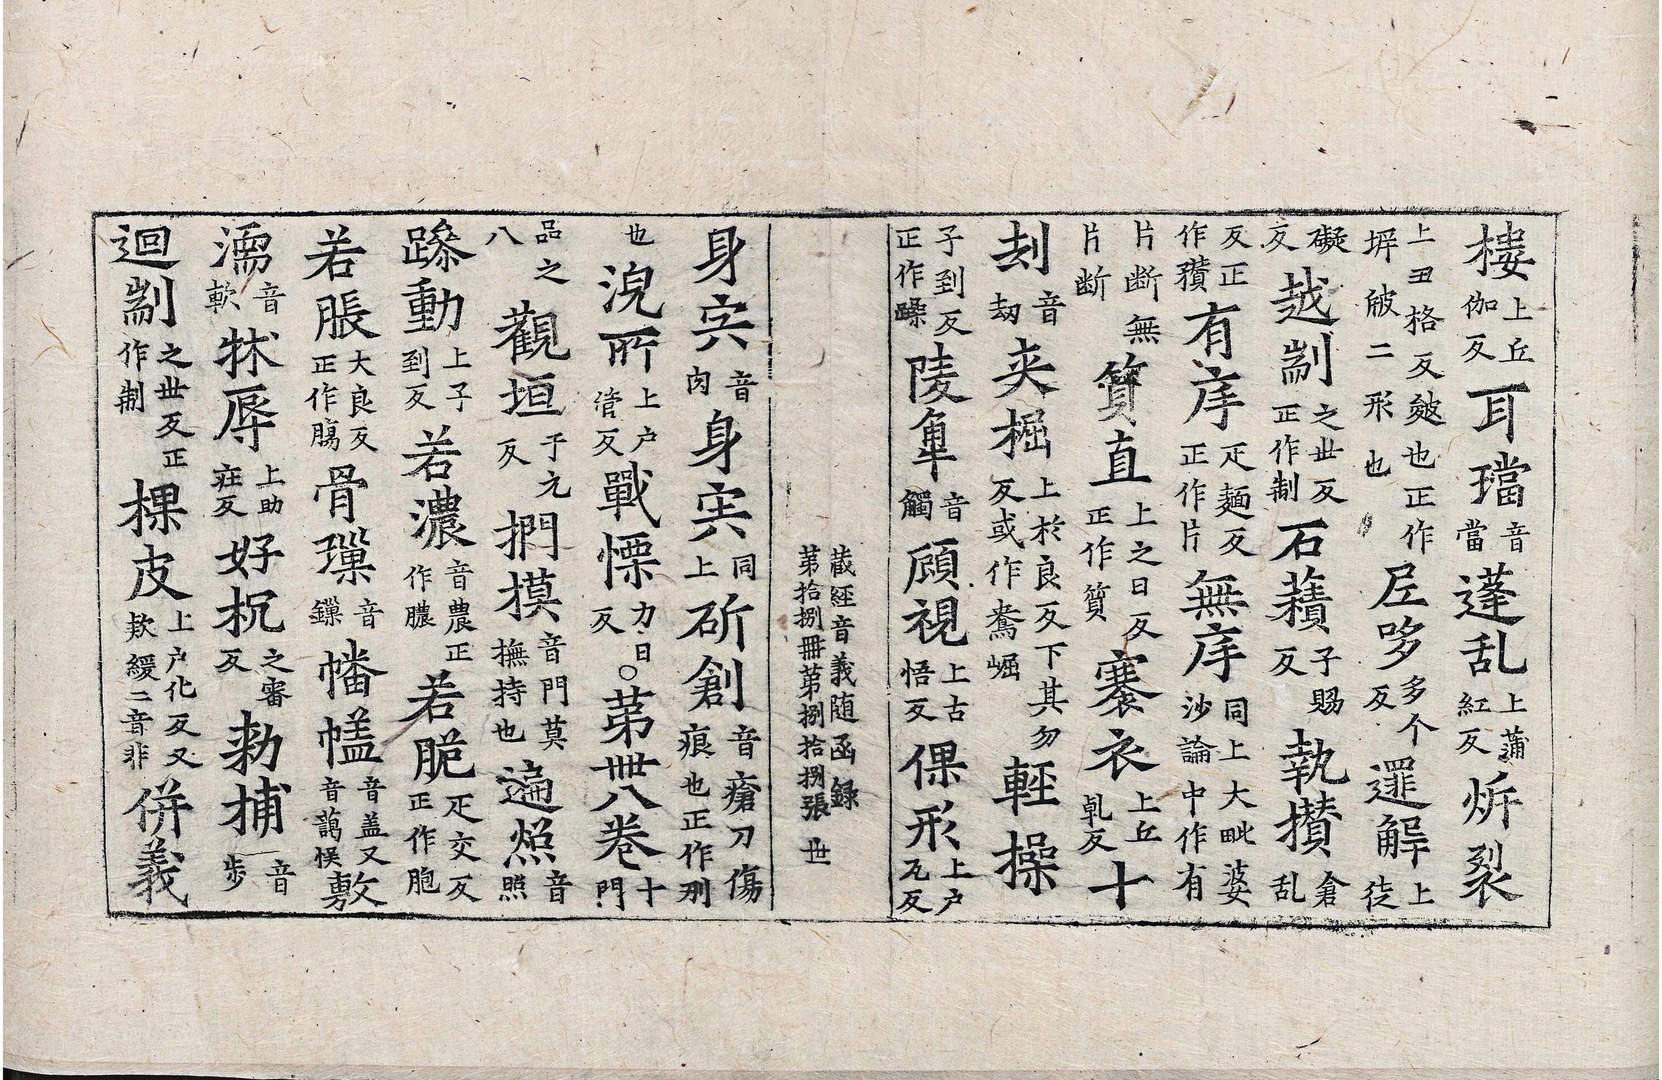 樓上丘伽反耳璫音當蓬乱上蒲紅反㸵裂
上丑格反皴也正作㙤㿱二形也𡰱哆多个反邐解上徒
礙反越剬之世反正作制石䕆子賜反執攅倉乱
反正作欑有㡿疋麵反正作片無㡿同上大毗婆沙論中作有
片斷無片断質直上之日反正作質褰衣上丘乹反十
刦音劫夾掘上於良反下其勿反或作鴦崛輕操
子到反正作躁陵䡄音觸頋視上古悟反倮形上户瓦反
藏経音義随函録
第拾捌冊第捌拾捌張 世
身宍音肉身宾同上斫創音瘡刀傷痕也正作刅
也涀所上户管反戰慄力日反○第丗八卷十門
品之八觀垣于元反捫摸音門莫撫持也遍㷖音照
蹂動上子到反若濃音農正作膿若脃疋交反正作胞
若脹大良反正作膓骨璅音鏁幡㡋音盖又音藹悮敷
濡音軟牀辱上助疰反好抧之審反勑捕音步
迴剬之世反正作制棵皮上户化反又欵緩二音非併義